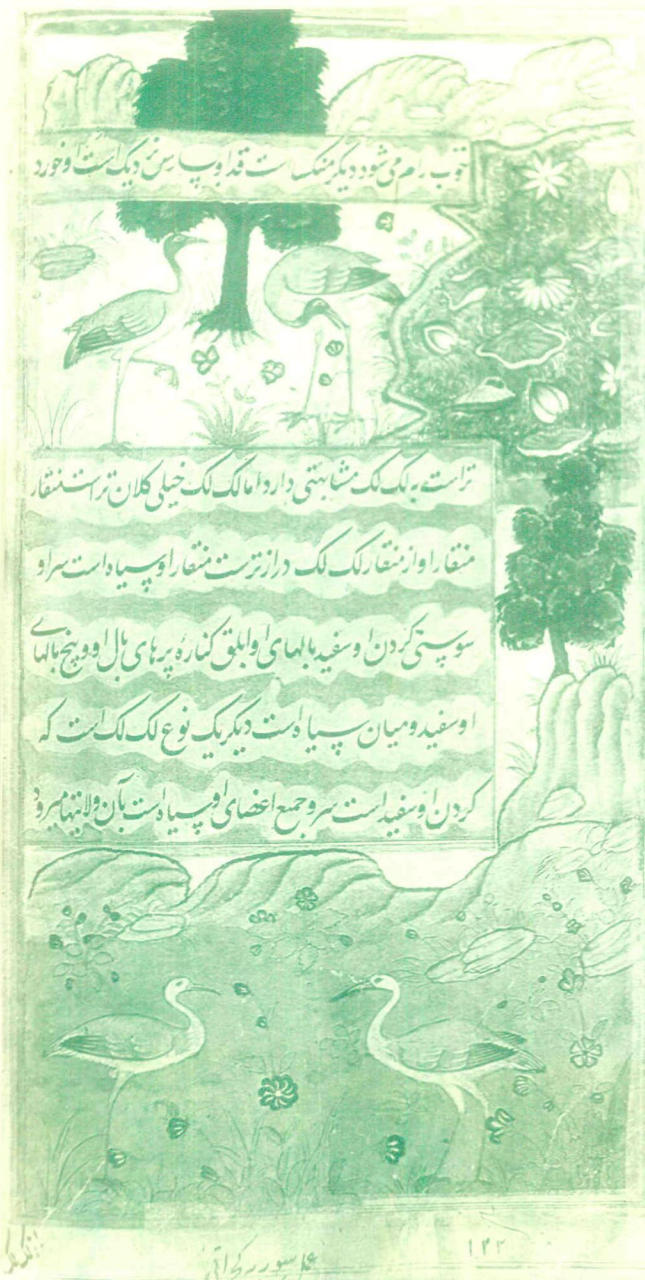 خوب رام می شود دیگر منک است قد او پارس نزدیک است او خورد
تر است به لک لک مشابهتی دارد اما لک لک خیلی کلان تر است منقار
منقار او از منقار لک لک درازترست منقار او سیاه است سر او
سوسنی گردن او سفید بالهای او ابلق کناره پرهای بال او و بیخ بالهای
او سفید و میان سیاه است دیگر یک نوع لک لک است که
گردن او سفید است سر و جمع اعضای او سیاه است بآن ولایتها میرود
عمل سور گجراتی
۱۴۲